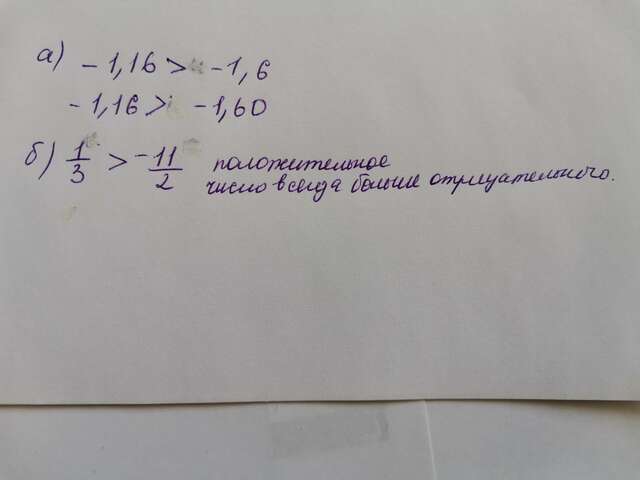 а) -1,16 > -1,6
-1,16 > -1,60
б) 1/3 > -11/2 положительное
число всегда больше отрицательного.